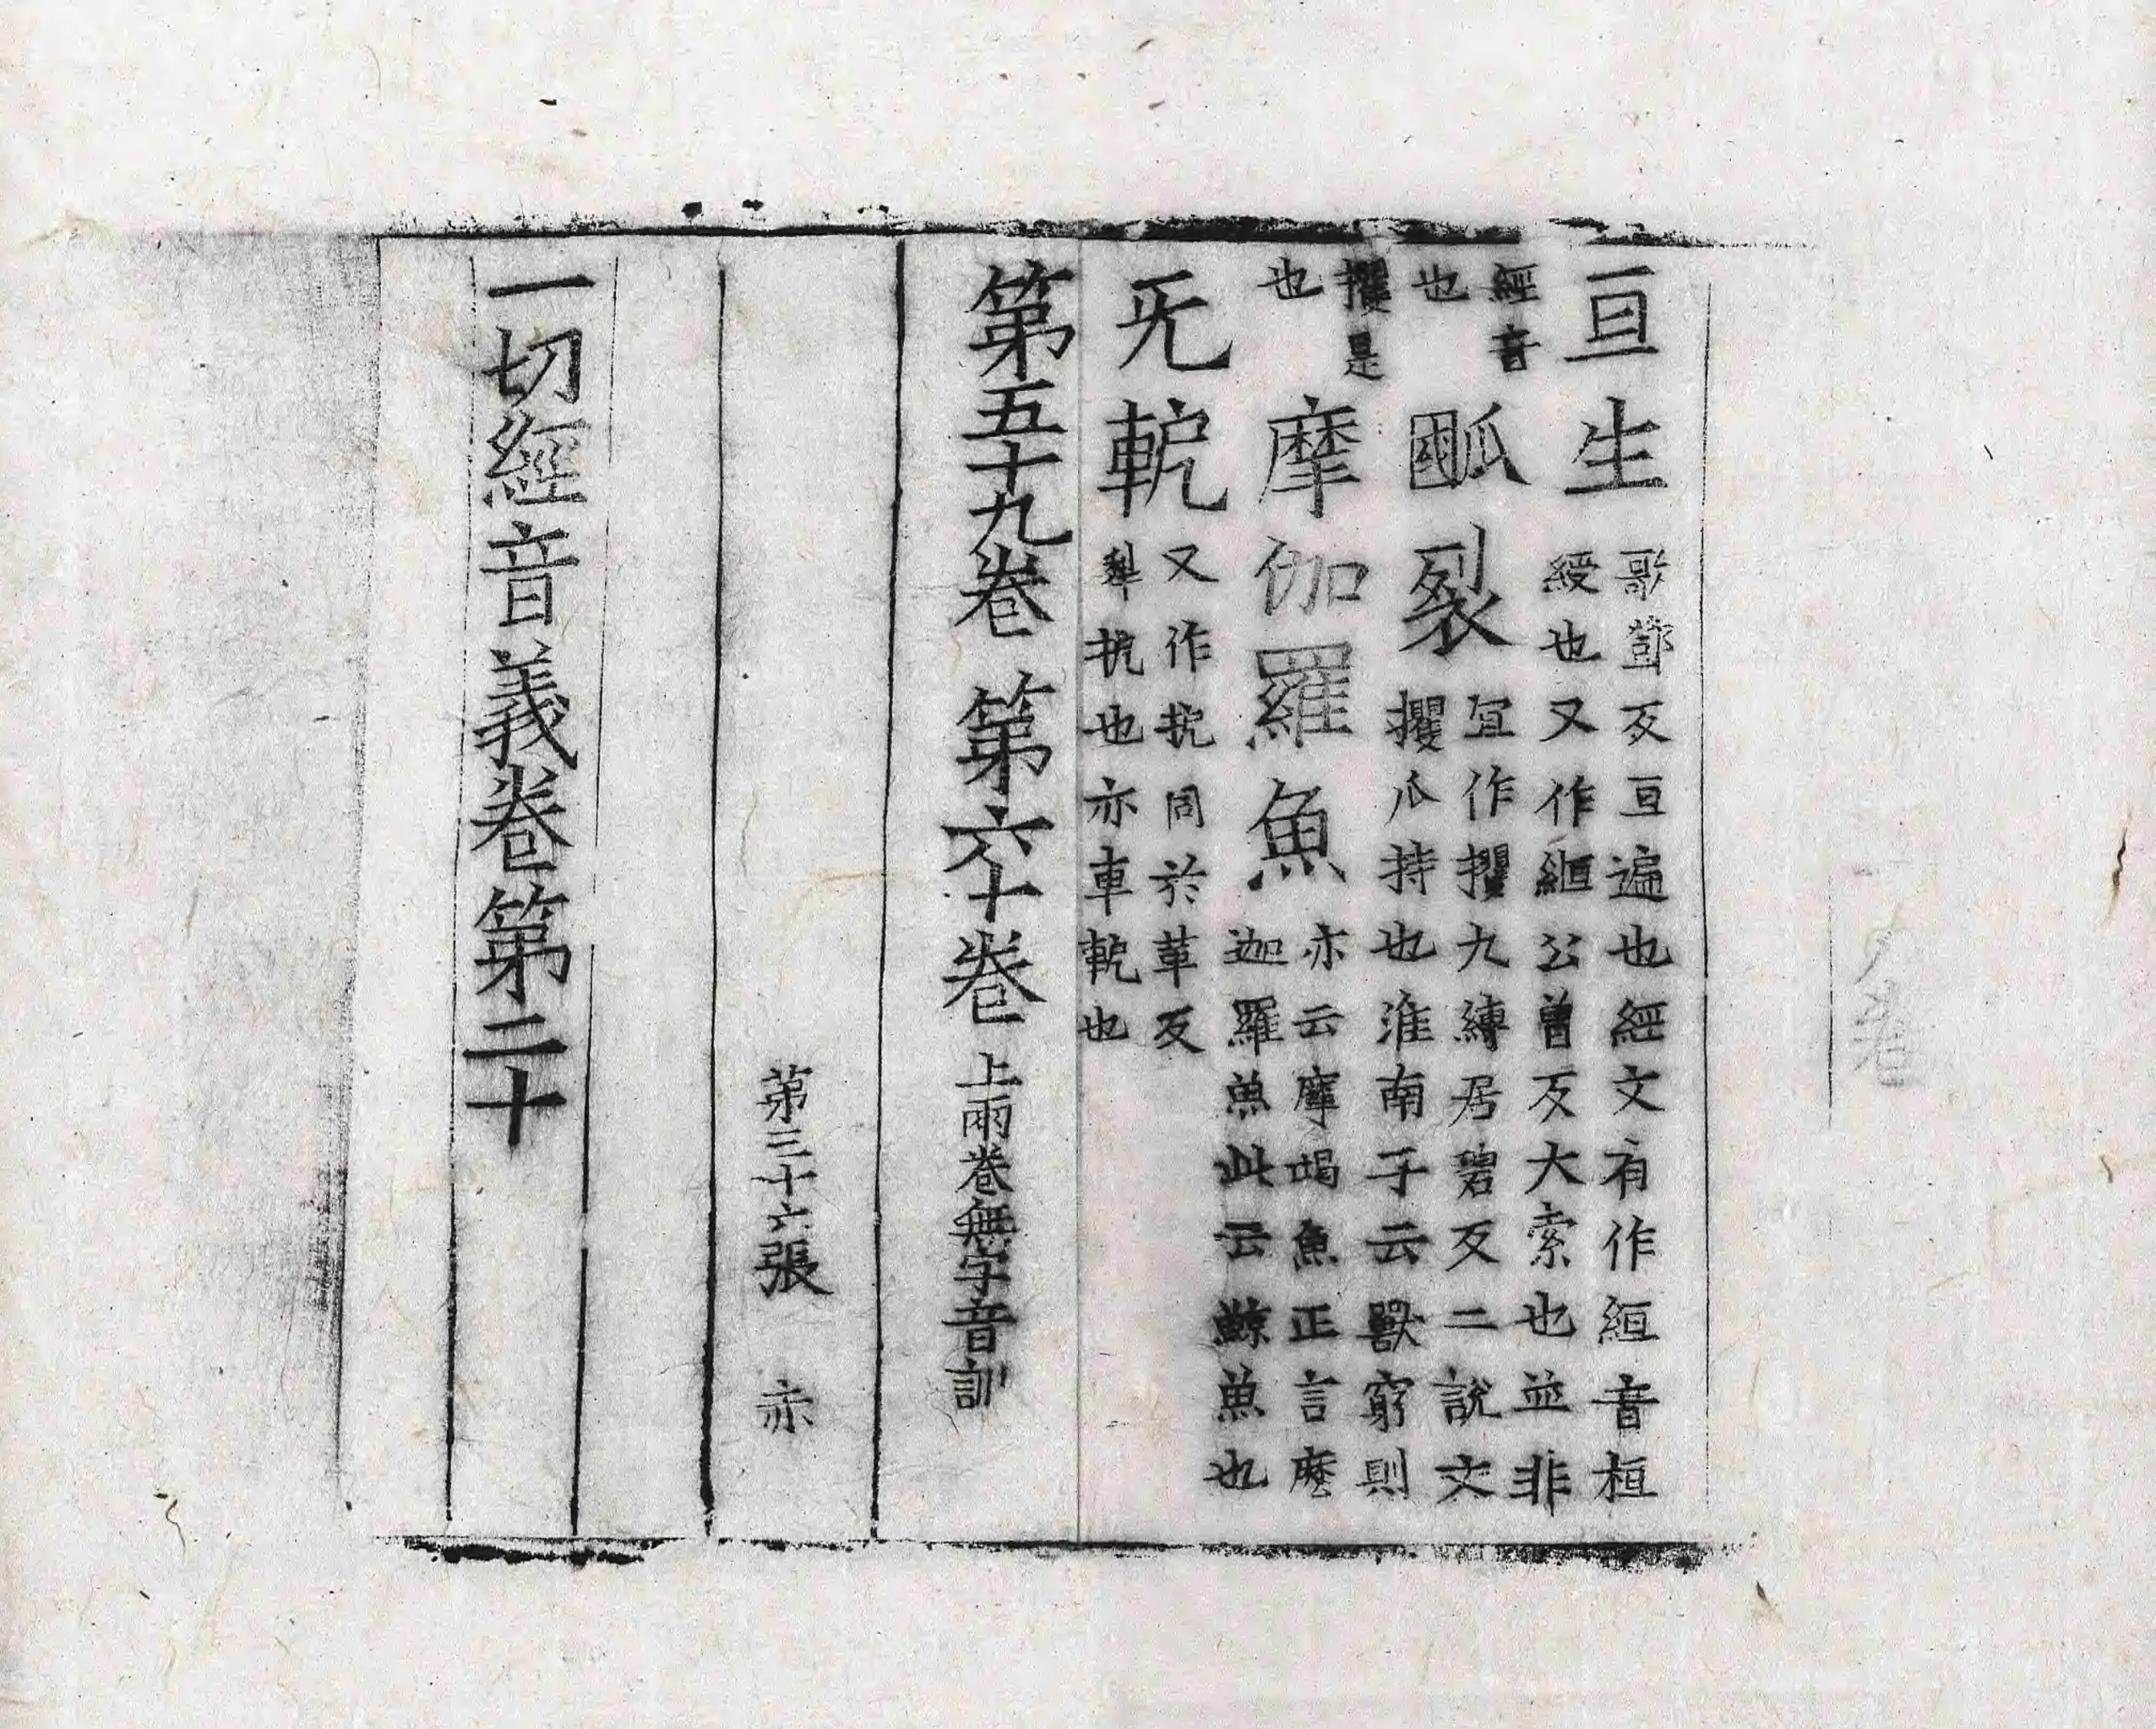 亘生歌鄧反亘遍也經文有作絙音桓
綬也又作縆公曾反大索也並非
經音
也
爴裂宜作攫九縛居碧反二說文
攫爪持也淮南子云獸窮則
攫是
也
摩伽羅魚亦云摩竭魚正言麽
迦羅魚此云鯨魚也
旡軶又作扼同於革反
犁扼也亦車軶也
第五十九卷 第六十卷 上兩卷無字音訓
第三十六張 亦
一切經音義卷第二十